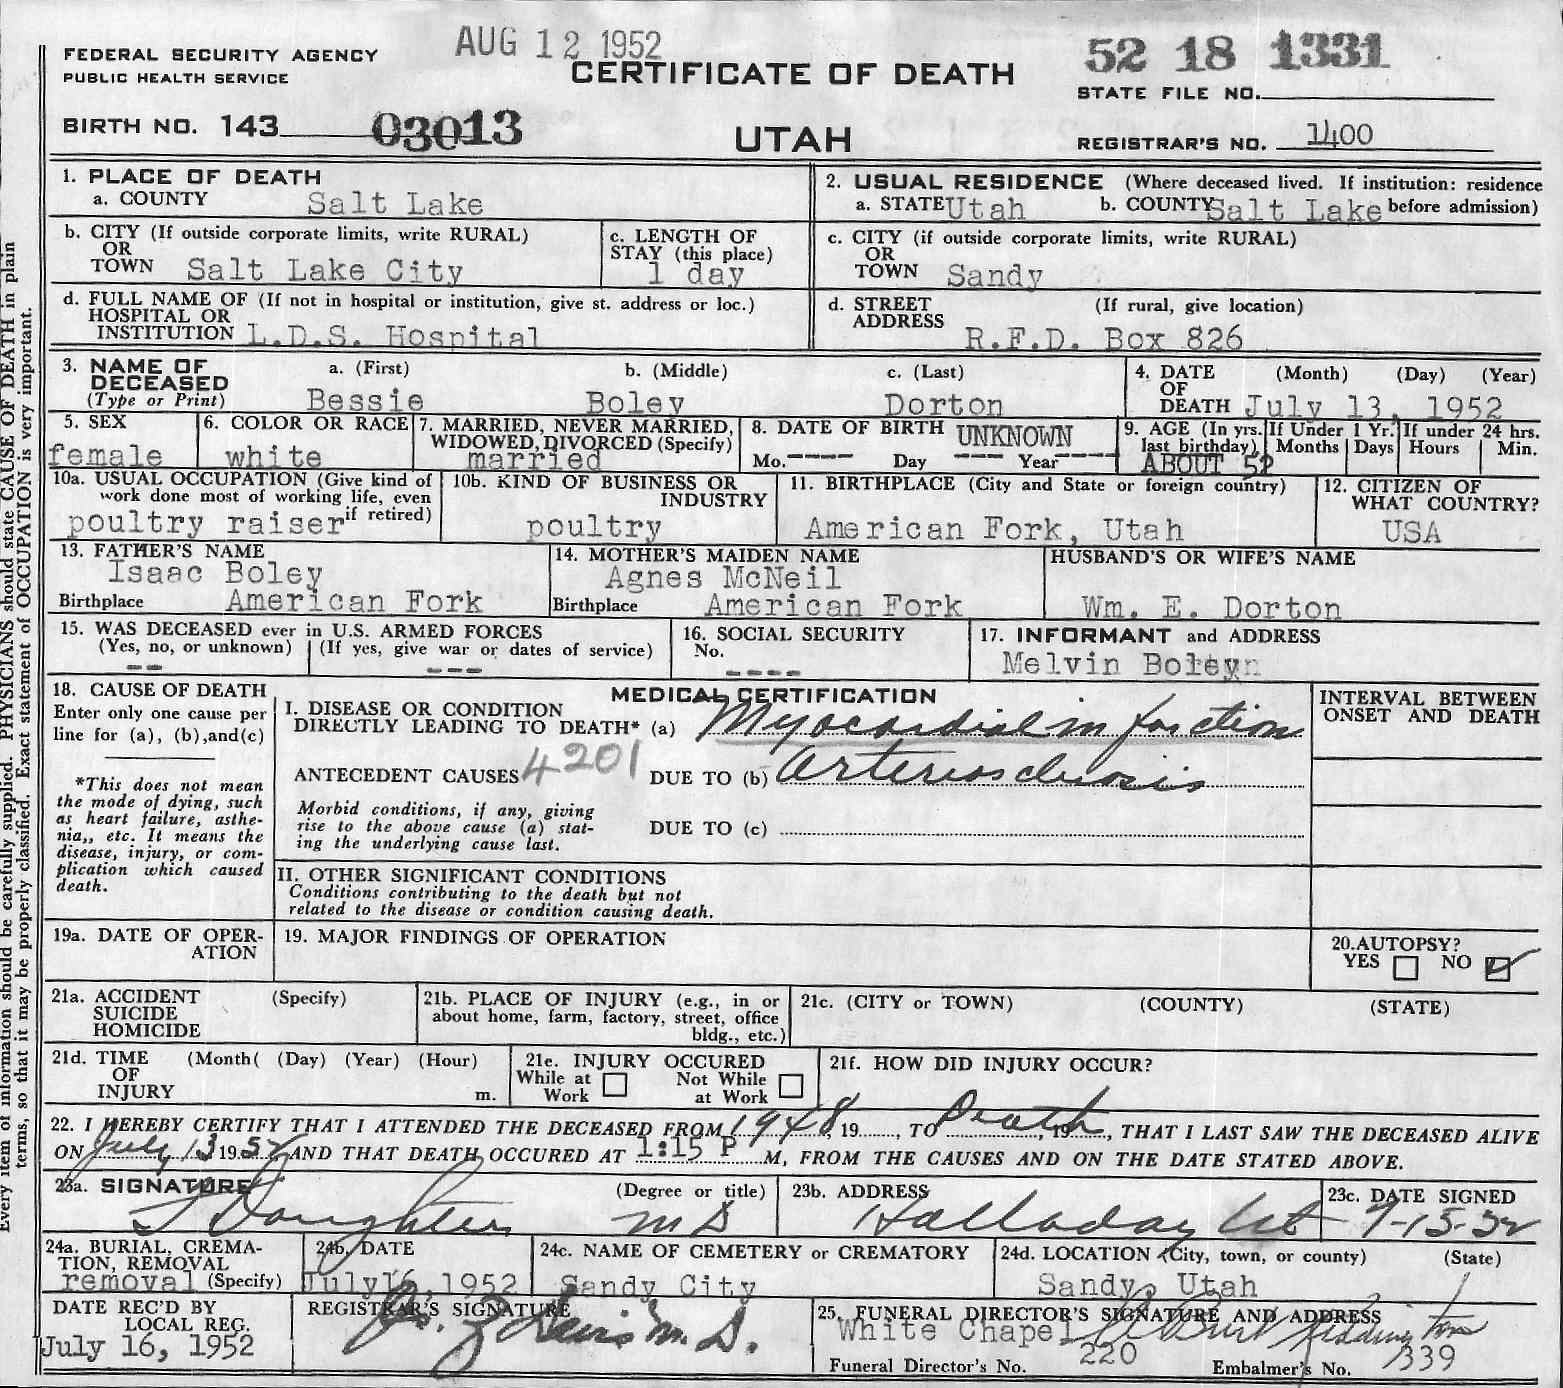 AUG 12 1952
FEDERAL SECURITY AGENCY
PUBLIC HEALTH SERVICE
CERTIFICATE OF DEATH
52 18 1331
STATE FILE NO.
BIRTH NO. 143 03013
UTAH
REGISTRAR'S NO. 1400
1. PLACE OF DEATH
a. COUNTY Salt Lake
2. USUAL RESIDENCE (Where deceased lived. If institution: residence
a. STATE Utah b. COUNTY Salt Lake before admission)
b. CITY (If outside corporate limits, write RURAL)
OR
TOWN Salt Lake City
c. LENGTH OF
STAY (this place)
1 day
c. CITY (if outside corporate limits, write RURAL)
OR
TOWN Sandy
d. FULL NAME OF (If not in hospital or institution, give st. address or loc.)
HOSPITAL OR
INSTITUTION L.D.S. Hospital
d. STREET (If rural, give location)
ADDRESS R.F.D. Box 826
3. NAME OF a. (First) b. (Middle) c. (Last)
DECEASED
(Type or Print) Bessie Boley Dorton
4. DATE (Month) (Day) (Year)
OF
DEATH July 13, 1952
5. SEX
female
6. COLOR OR RACE
white
7. MARRIED, NEVER MARRIED,
WIDOWED, DIVORCED (Specify)
married
8. DATE OF BIRTH UNKNOWN
Mo. ---- Day --- Year ----
9. AGE (In yrs. If Under 1 Yr. If under 24 hrs.
last birthday) Months Days Hours Min.
ABOUT 52
10a. USUAL OCCUPATION (Give kind of
work done most of working life, even
if retired)
poultry raiser
10b. KIND OF BUSINESS OR
INDUSTRY
poultry
11. BIRTHPLACE (City and State or foreign country)
American Fork, Utah
12. CITIZEN OF
WHAT COUNTRY?
USA
13. FATHER'S NAME
Isaac Boley
Birthplace American Fork
14. MOTHER'S MAIDEN NAME
Agnes McNeil
Birthplace American Fork
HUSBAND'S OR WIFE'S NAME
Wm. E. Dorton
15. WAS DECEASED ever in U.S. ARMED FORCES
(Yes, no, or unknown) (If yes, give war or dates of service)
-- ---
16. SOCIAL SECURITY
No.
----
17. INFORMANT and ADDRESS
Melvin Boleyn
18. CAUSE OF DEATH
Enter only one cause per
line for (a), (b), and (c)
*This does not mean
the mode of dying, such
as heart failure, asthe-
nia,, etc. It means the
disease, injury, or com-
plication which caused
death.
MEDICAL CERTIFICATION
I. DISEASE OR CONDITION
DIRECTLY LEADING TO DEATH* (a) Myocardial infarction
ANTECEDENT CAUSES 4201 DUE TO (b) Arteriosclerosis
Morbid conditions, if any, giving
rise to the above cause (a) stat-
ing the underlying cause last.
DUE TO (c)
II. OTHER SIGNIFICANT CONDITIONS
Conditions contributing to the death but not
related to the disease or condition causing death.
INTERVAL BETWEEN
ONSET AND DEATH
19a. DATE OF OPER-
ATION
19. MAJOR FINDINGS OF OPERATION
20. AUTOPSY?
YES NO
21a. ACCIDENT (Specify)
SUICIDE
HOMICIDE
21b. PLACE OF INJURY (e.g., in or
about home, farm, factory, street, office
bldg., etc.)
21c. (CITY or TOWN) (COUNTY) (STATE)
21d. TIME (Month( (Day) (Year) (Hour)
OF
INJURY m.
21e. INJURY OCCURED
While at Work Not While at Work
21f. HOW DID INJURY OCCUR?
22. I HEREBY CERTIFY THAT I ATTENDED THE DECEASED FROM 1948, 19, TO Death, 19, THAT I LAST SAW THE DECEASED ALIVE
ON July 13 1952 AND THAT DEATH OCCURED AT 1:15 P M, FROM THE CAUSES AND ON THE DATE STATED ABOVE.
23a. SIGNATURE (Degree or title)
Daughters M D
23b. ADDRESS
Holladay Ut
23c. DATE SIGNED
7-15-52
24a. BURIAL, CREMA-
TION, REMOVAL
removal (Specify)
24b. DATE
July 16, 1952
24c. NAME OF CEMETERY or CREMATORY
Sandy City
24d. LOCATION (City, town, or county) (State)
Sandy, Utah
DATE REC'D BY
LOCAL REG.
July 16, 1952
REGISTRAR'S SIGNATURE
M. D.
25. FUNERAL DIRECTOR'S SIGNATURE AND ADDRESS
White Chapel
Funeral Director's No. 220 Embalmer's No. 339
Every item of information should be carefully supplied. PHYSICIANS should state CAUSE OF DEATH in plain
terms, so that it may be properly classified. Exact statement of OCCUPATION is very important.